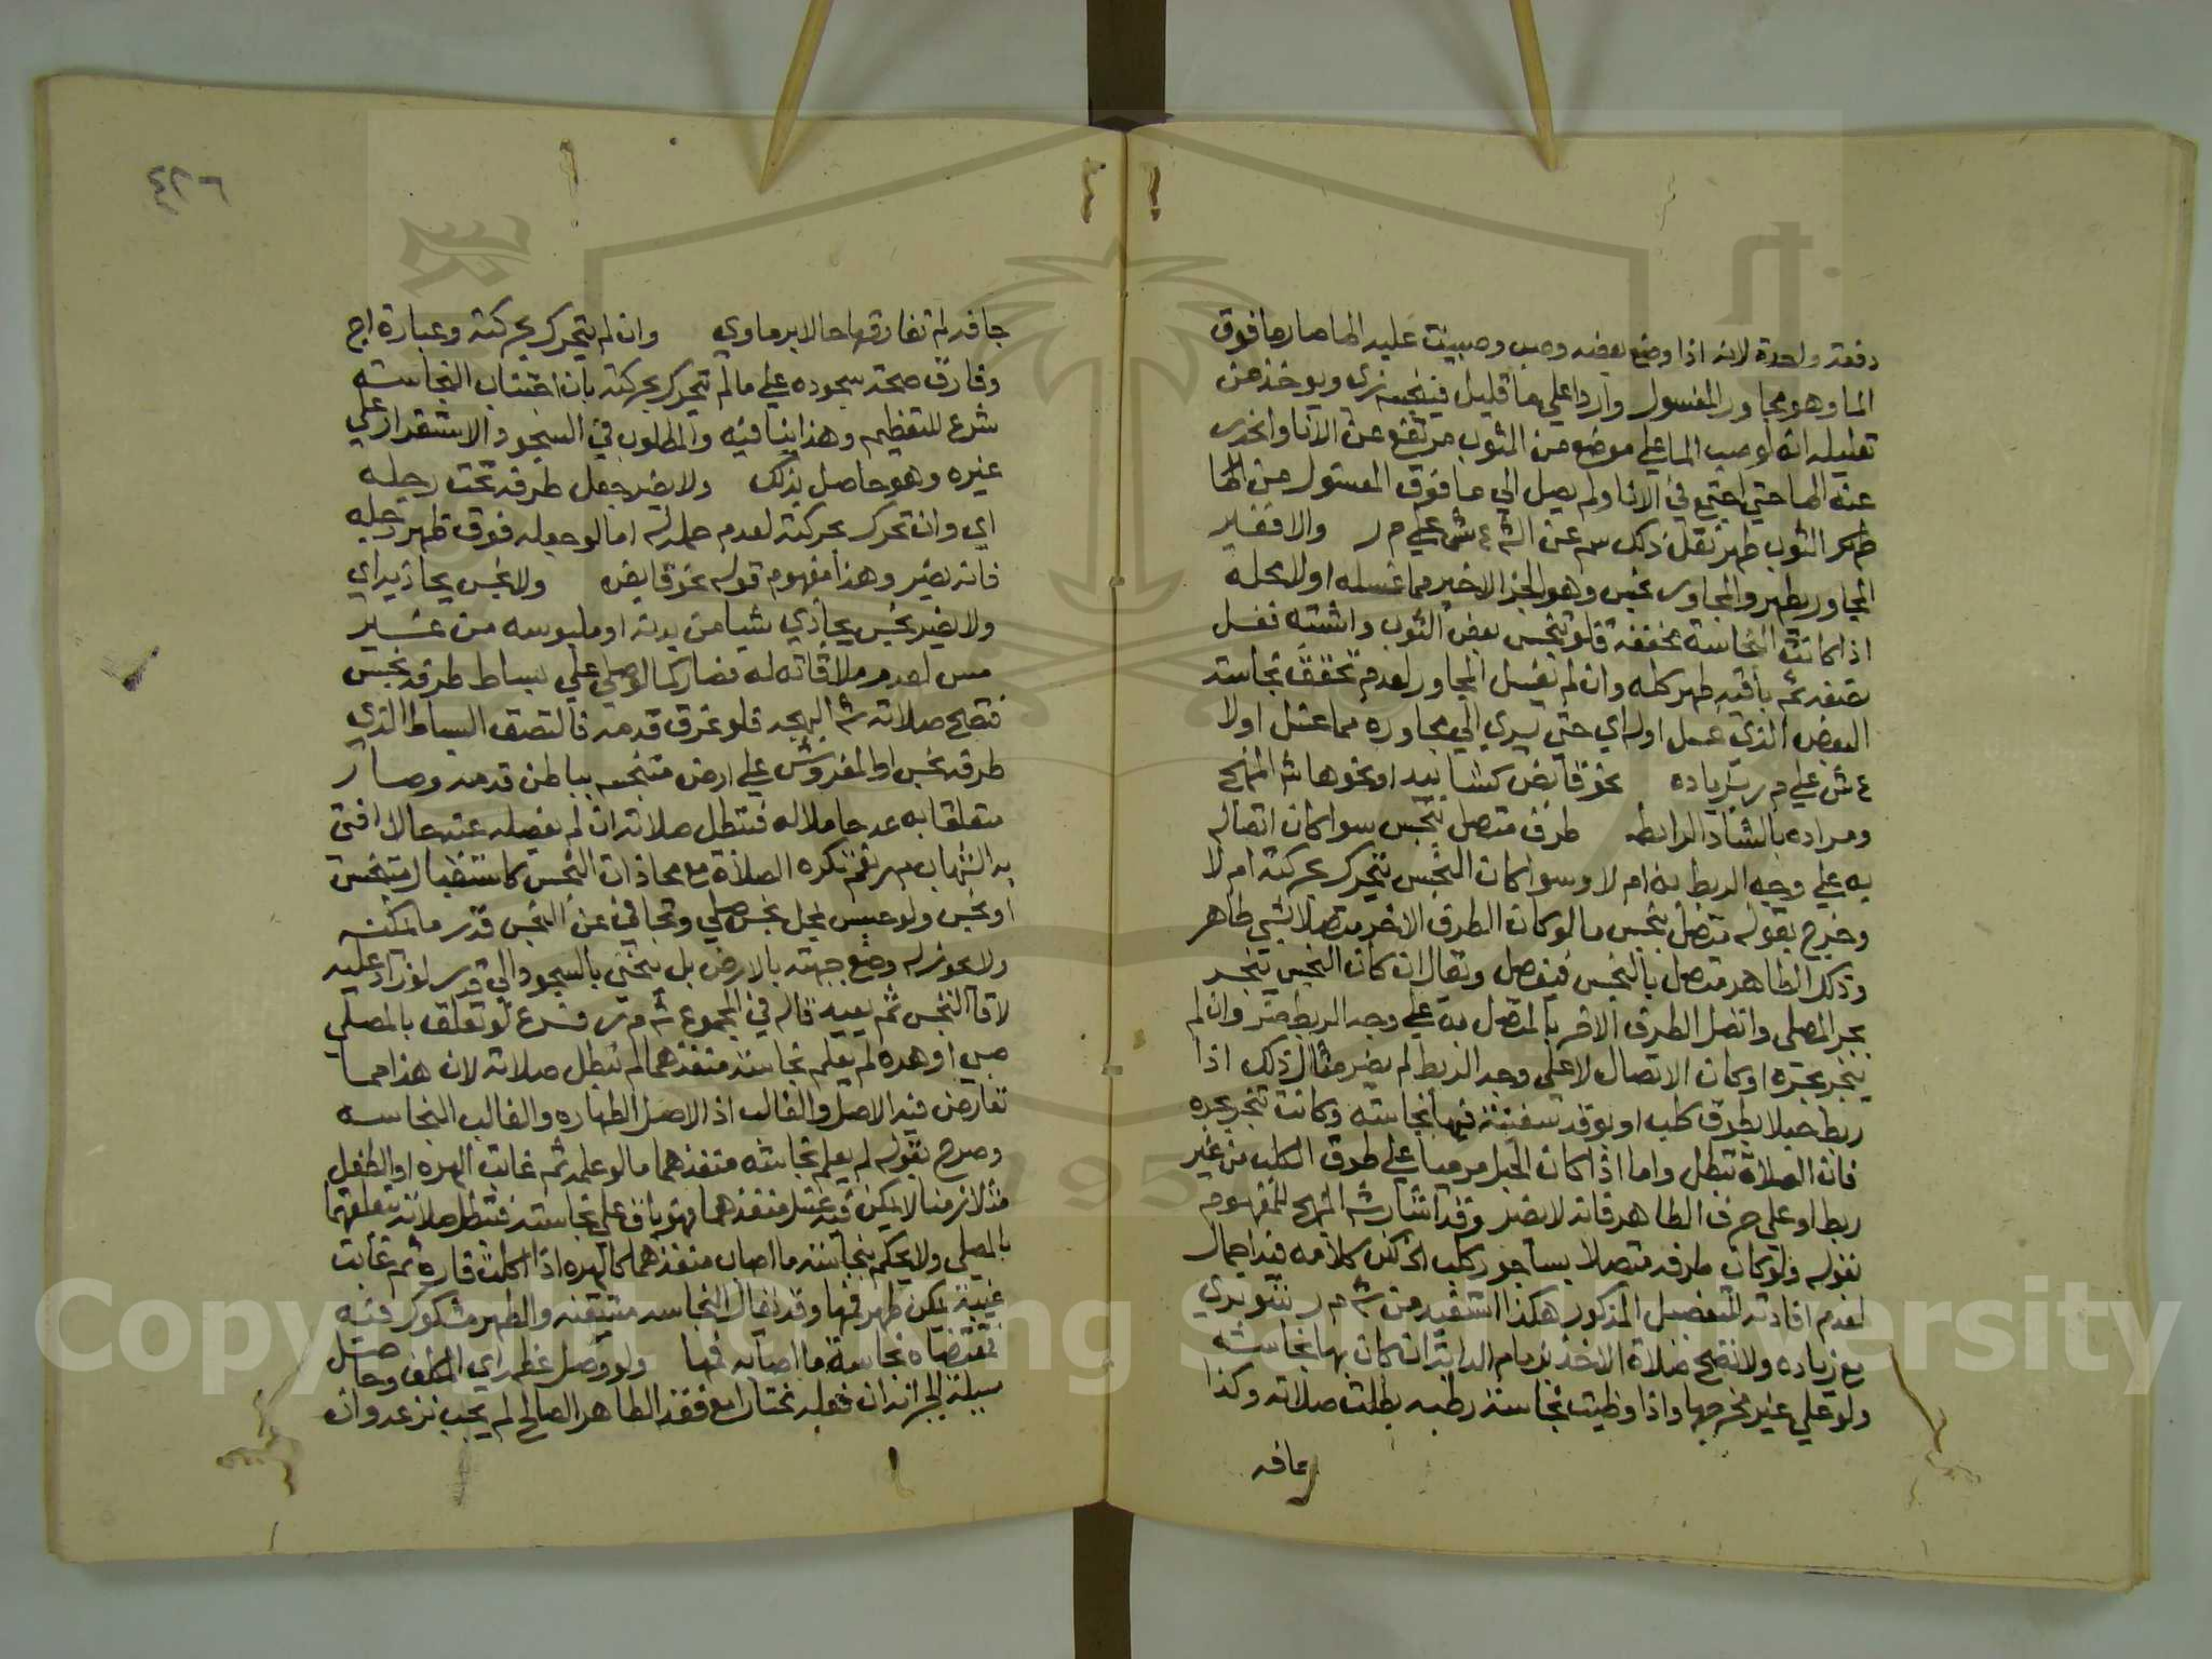 دفعة واحدة لانه اذا وضع بعضه وصب وصبيت عليه الما صار ما فوق
الما وهو مجاور المغسول واردا علي ما قليل فينجسه زي ويوخذ من
تعليله انه لو صب الما علي موضع من الثوب مرتفع عن الانا وانحدر
عنه الما حتي اجتمع في الانا ولم يصل الي ما فوق المغسول من الما
طهر الثوب طهر نقل ذلك سم عن الش ع ش علي م ر والا فغير
المجاور يطهر والمجاور نجس وهو الجز الاخير مما غسله اولا محله
اذا كانت النجاسة محققة فلو تنجس بعض الثوب واشتبه فغسل
نصفه ثم باقيه طهر كله وان لم يغسل المجاور لعدم تحقق نجاسة
البعض الذي غسل اوله اي حتي يسري الي مجاوره مما غسل اولا
ع ش علي م ر بزياده نحو قابض كشاد بيد او نحوها ش المنهج
ومراده بالشاد الرابط طرف متصل بنجس سوا كان اتصاله
به علي وجه الربط به ام لا وسوا كان النجس يتحرك بحركته ام لا
وخرج بقوله متصل بنجس ما لو كان الطرف الاخر متصلا بشي طاهر
وذلك الطاهر متصل بالنجس فيفصل ويقال ان كان النجس ينجر
بجر المصلي واتصل الطرف الاخر بالمتصل به علي وجه الربط ضر وان لم
ينجر بجره او كان الاتصال لا علي وجه الربط لم يضر مثال ذلك اذا
ربط حبلا بطوق كلب او بوتد سفينة فيها نجاسة وكانت تنجر بجره
فان الصلاة تبطل واما اذا كان الحبل مرميا علي طوق الكلب من غير
ربط او علي حرف الطاهر فانه لا يضر وقد اشار ش المنهج للمفهوم
بقوله ولو كان طرفه متصلا بساجور كلب الخ لكن كلامه فيه اجمال
لعدم افادته التفصيل المذكور هكذا استفيد من ش م ر شوبري
مع زياده ولا تصح صلاة الاخذ بزمام الدابة ان كان بها نجاسة
ولو علي غير مخرجها واذا وطيت نجاسة رطبه بطلت صلاته وكذا
جافه
جافه لم تفارقها حالا برماوي وان لم يتحرك بحركته وعبارة اج
وفارق صحة سجوده علي ما لم يتحرك بحركته بان اجتناب النجاسة
شرع للتعظيم وهذا ينافيه والمطلوب في السجود الاستقرار علي
غيره وهو حاصل بذلك ولا يضر جعل طرفه تحت رجله
اي وان تحرك بحركته لعدم حمله له اما لو جعله فوق ظهر رجله
فانه يضر وهذا مفهوم قوله نحو قابض ولا نجس يحاذيه اي
ولا يضر نجس يحاذي شيا من بدنه او ملبوسه من غير
مس لعدم ملاقاته له فصار كما لو صلي علي بساط طرفه نجس
فتصح صلاته ش البهجه فلو عرق قدمه فالتصق البساط الذي
طرفه نجس او المفروش علي ارض متنجسه بباطن قدمه وصار
متعلقا به عد حاملا له فتبطل صلاته ان لم يفصله عنه حالا افتي
به الشهاب م ر نعم تكره الصلاة مع محاذات النجس كاستقبال متنجس
او نجس ولو حبس بمحل نجس صلي وتجافي عن النجس قدر ما يمكنه
ولا يجوز له وضع جبهته بالارض بل ينحني بالسجود الي قدر لو زاد عليه
لاقا النجس ثم يعيد قاله في المجموع ش م ر فرع لو تعلق بالمصلي
صبي او هره لم يعلم نجاسة منفذهما لم تبطل صلاته لان هذا مما
تعارض فيه الاصل والغالب اذ الاصل الطهاره والغالب النجاسه
وخرج بقوله لم يعلم نجاسة منفذهما ما لو علمه ثم غابت الهره او الطفل
زمنا لا يمكن فيه غسل منفذهما فهو باق علي نجاسته فتبطل صلاته بتعلقهما
بالمصلي ولا يحكم بنجاسة ما اصاب منفذهما كالهره اذا اكلت فاره ثم غابت
غيبة يمكن طهر فمها وقد يقال النجاسه متيقنه والطهر مشكوك فيه
فمقتضاه نجاسة ما اصابه فمها ولو وصل عظمه اي المكلف وحاصل
مسيلة الجبر انه ان فعله مختارا مع فقد الطاهر الصالح لم يجب نزعه وان
٤٢٦